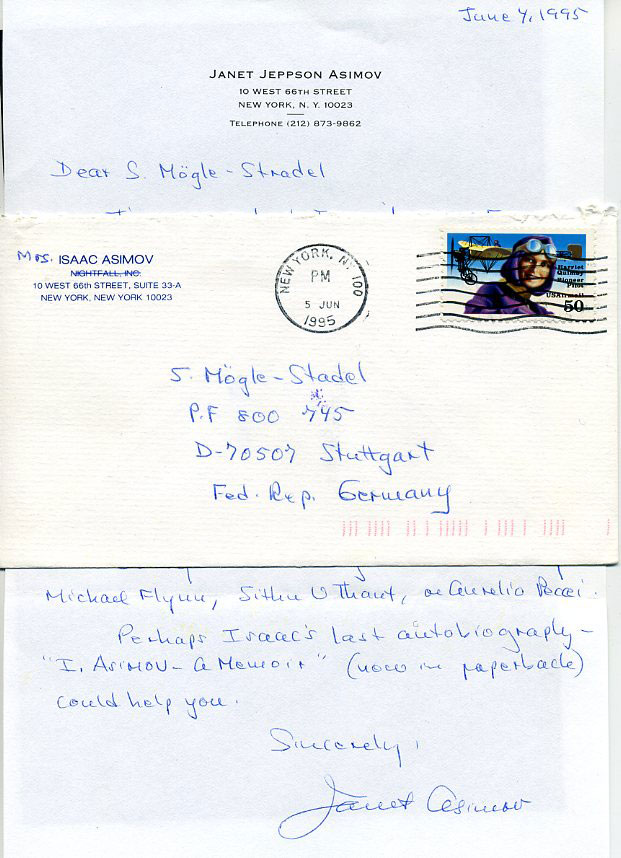 June 4, 1995
JANET JEPPSON ASIMOV
10 WEST 66TH STREET
NEW YORK, N. Y. 10023
TELEPHONE (212) 873-9862
Dear S. Mögle-Stradel
Mrs. ISAAC ASIMOV
NIGHTFALL, INC.
10 WEST 66th STREET, SUITE 33-A
NEW YORK, NEW YORK 10023
NEW YORK, NY 100
PM
5 JUN
1995
Harriet
Quimby
Pioneer
Pilot
USAirmail
50
S. Mögle-Stadel
P.F 800 745
D-70507 Stuttgart
Fed. Rep. Germany
Michael Flynn, Sithu U Thant, or Aurelio Peccei.
Perhaps Isaac's last autobiography-
"I. ASIMOV- a Memoir" (now in paperback)
could help you.
Sincerely,
Janet Asimov